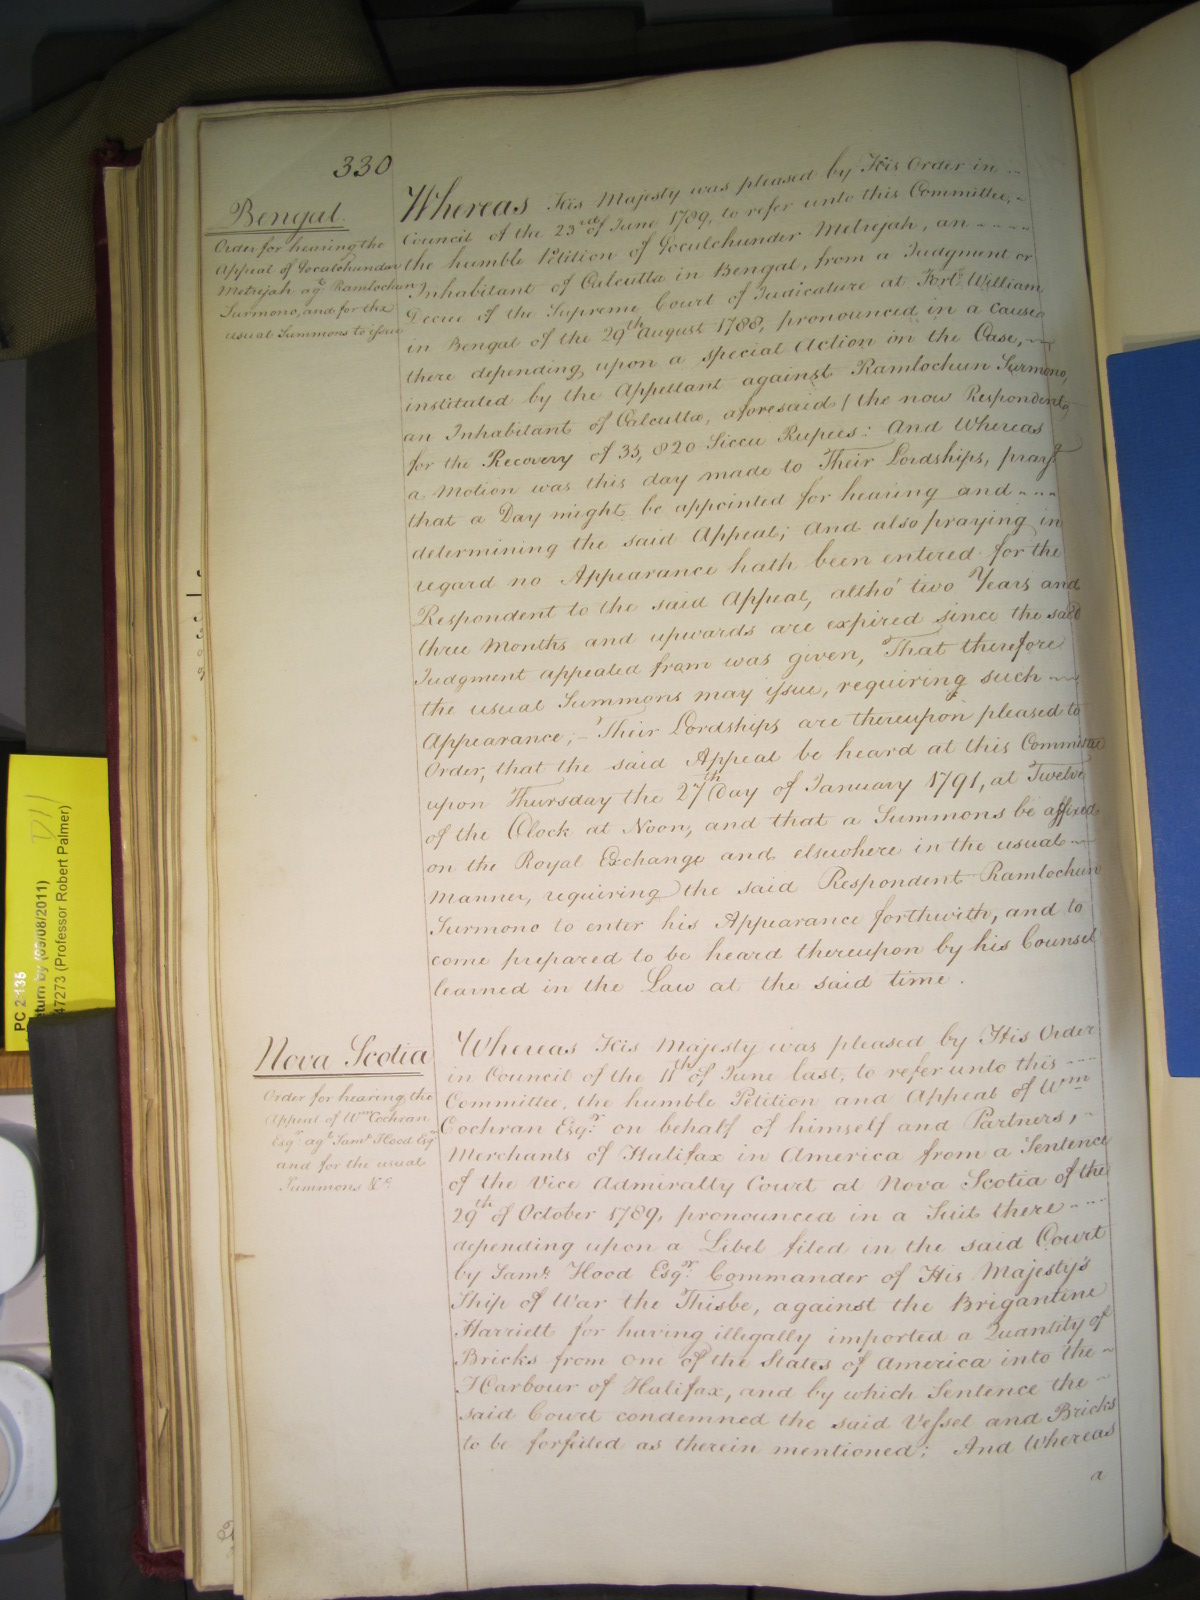 330
Bengal.
Order for hearing the
Appeal of Goculchunder
Metrejah agt. Ramlochun
Surmono, and for the
usual Summons to issue
Whereas His Majesty was pleased by His Order in
Council of the 23rd of June 1789, to refer unto this Committee,
the humble Petition of Goculchunder Metrejah, an
Inhabitant of Calcutta in Bengal, from a Judgment or
Decree of the Supreme Court of Judicature at Fort William
in Bengal of the 29th August 1788, pronounced in a Cause
there depending upon a special Action on the Case,
instituted by the Appellant against Ramlochun Surmono,
an Inhabitant of Calcutta, aforesaid (the now Respondent,
for the Recovery of 35,820 Sicca Rupees: And Whereas
a Motion was this day made to Their Lordships, prayg
that a Day might be appointed for hearing and
determining the said Appeal; And also praying in
regard no Appearance hath been entered for the
Respondent to the said Appeal, altho' two Years and
three Months and upwards are expired since the said
Judgment appealed from was given, That therefore
the usual Summons may issue, requiring such
Appearance;- Their Lordships are thereupon pleased to
Order, that the said Appeal be heard at this Committee
upon Thursday the 27th Day of January 1791, at Twelve
of the Clock at Noon, and that a Summons be affixed
on the Royal Exchange and elsewhere in the usual
Manner, requiring the said Respondent Ramlochun
Surmono to enter his Appearance forthwith, and to
come prepared to be heard thereupon by his Counsel
learned in the Law at the said time.
Nova Scotia
Order for hearing the
Appeal of Wm Cochran
Esqr. agt. Saml. Hood Esqr
and for the usual
Summons &c.
Whereas His Majesty was pleased by His Order
in Council of the 11th of June last, to refer unto this
Committee, the humble Petition and Appeal of Wm
Cochran Esqr. on behalf of himself and Partners,
Merchants of Halifax in America from a Sentence
of the Vice Admiralty Court at Nova Scotia of the
29th of October 1789, pronounced in a Suit there
depending upon a Libel filed in the said Court
by Saml. Hood Esqr. Commander of His Majesty's
Ship of War the Thisbe, against the Brigantine
Harriett for having illegally imported a Quantity of
Bricks from one of the States of America into the
Harbour of Halifax, and by which Sentence the
said Court condemned the said Vessel and Bricks
to be forfeited as therein mentioned; And Whereas
a
PC 2 135
return by (09/08/2011)
47273 (Professor Robert Palmer)